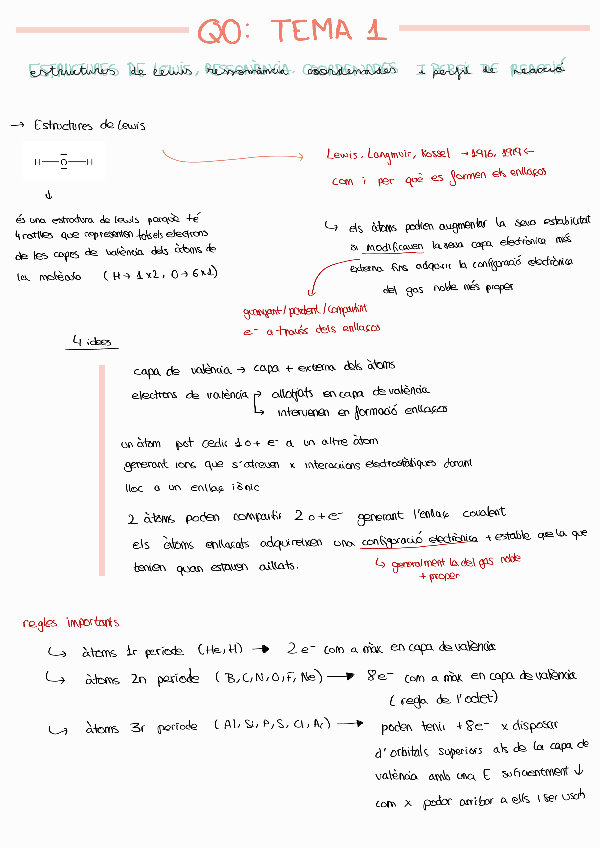 QO: TEMA 1
estructures de lewis, ressonància. coordenades i perfil de reacció
→ Estructures de Lewis
H—O—H
Lewis, Langmuir, Kossel → 1916, 1919 ←
com i per què es formen els enllaços
és una estructura de lewis perquè té
4 ratlles que representen tots els electrons
de les capes de valència dels àtoms de
la molècula (H → 1x2, O → 6x1)
↳ els àtoms podien augmentar la seva estabilitat
si modificaven la seva capa electrònica més
externa fins adquirir la configuració electrònica
del gas noble més proper
guanyant/perdent/compartint
e⁻ a través dels enllaços
4 idees
capa de valència → capa + externa dels àtoms
electrons de valència → allotjats en capa de valència
↳ intervenen en formació enllaços
un àtom pot cedir 1 o + e⁻ a un altre àtom
generant ions que s'atreuen x interaccions electrostàtiques donant
lloc a un enllaç iònic
2 àtoms poden compartir 2 o + e⁻ generant l'enllaç covalent
els àtoms enllaçats adquireixen una configuració electrònica + estable que la que
tenien quan estaven aïllats.
↳ generalment la del gas noble
+ proper
regles importants
↳ àtoms 1r període (He, H) → 2 e⁻ com a màx en capa de valència
↳ àtoms 2n període (B, C, N, O, F, Ne) → 8e⁻ com a màx en capa de valència
(regla de l'octet)
↳ àtoms 3r període (Al, Si, P, S, Cl, Ar) → poden tenir +8e⁻ x disposar
d'orbitals superiors als de la capa de
valència amb una E suficientment ↓
com x poder arribar a ells i ser usats